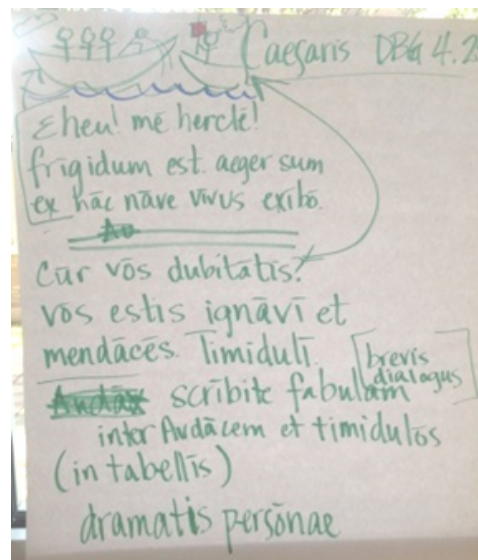 Caesaris DBG 4.2
Eheu! me hercle!
frigidum est. aeger sum
ex hāc nāve vivus exībō.
Cūr vōs dubitātis?
vōs estis ignāvī et
mendācēs. Timidulī.
[brevis
dialogus]
scrībite fabulam
inter Audācem et timidulōs
(in tabellīs)
dramatis persōnae